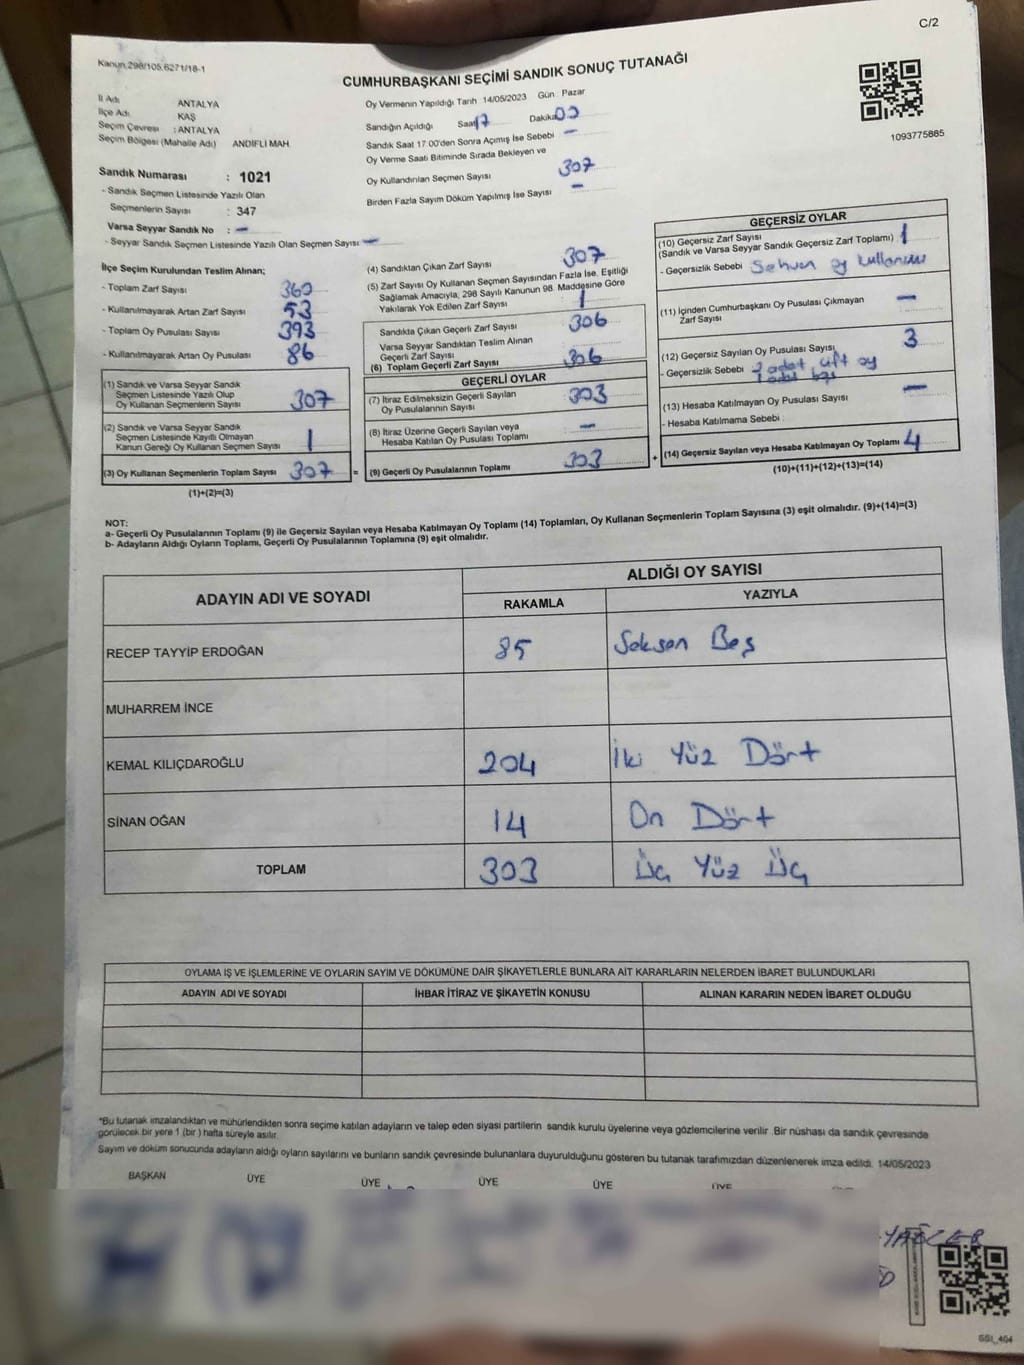 C/2
Kanun.298/105,6271/18-1
CUMHURBAŞKANI SEÇİMİ SANDIK SONUÇ TUTANAĞI
1093775885
İl Adı ANTALYA
İlçe Adı KAŞ
Seçim Çevresi : ANTALYA
Seçim Bölgesi (Mahalle Adı) ANDİFLİ MAH.
Sandık Numarası : 1021
- Sandık Seçmen Listesinde Yazılı Olan
Seçmenlerin Sayısı : 347
Varsa Seyyar Sandık No : -
- Seyyar Sandık Seçmen Listesinde Yazılı Olan Seçmen Sayısı -
Oy Vermenin Yapıldığı Tarih 14/05/2023 Gün Pazar
Sandığın Açıldığı Saat 17 Dakika 00
Sandık Saat 17:00'den Sonra Açımış İse Sebebi -
Oy Verme Saati Bitiminde Sırada Bekleyen ve
Oy Kullandırılan Seçmen Sayısı 307
Birden Fazla Sayım Döküm Yapılmış İse Sayısı -
İlçe Seçim Kurulundan Teslim Alınan;
- Toplam Zarf Sayısı 360
- Kullanılmayarak Artan Zarf Sayısı 53
- Toplam Oy Pusulası Sayısı 393
- Kullanılmayarak Artan Oy Pusulası 86
(1) Sandık ve Varsa Seyyar Sandık
Seçmen Listesinde Yazılı Olup
Oy Kullanan Seçmenlerin Sayısı 307
(2) Sandık ve Varsa Seyyar Sandık
Seçmen Listesinde Kayıtlı Olmayan
Kanun Gereği Oy Kullanan Seçmen Sayısı 1
(3) Oy Kullanan Seçmenlerin Toplam Sayısı 307 =
(1)+(2)=(3)
(4) Sandıktan Çıkan Zarf Sayısı 307
(5) Zarf Sayısı Oy Kullanan Seçmen Sayısından Fazla İse, Eşitliği
Sağlamak Amacıyla; 298 Sayılı Kanunun 98. Maddesine Göre
Yakılarak Yok Edilen Zarf Sayısı 1
Sandıkta Çıkan Geçerli Zarf Sayısı 306
Varsa Seyyar Sandıktan Teslim Alınan
Geçerli Zarf Sayısı
(6) Toplam Geçerli Zarf Sayısı 306
GEÇERLİ OYLAR
(7) İtiraz Edilmeksizin Geçerli Sayılan
Oy Pusulasının Sayısı 303
(8) İtiraz Üzerine Geçerli Sayılan veya
Hesaba Katılan Oy Pusulası Toplamı -
(9) Geçerli Oy Pusulalarının Toplamı 303 +
GEÇERSİZ OYLAR
(10) Geçersiz Zarf Sayısı
(Sandık ve Varsa Seyyar Sandık Geçersiz Zarf Toplamı) 1
- Geçersizlik Sebebi Sehven oy kullanımı
(11) İçinden Cumhurbaşkanı Oy Pusulası Çıkmayan
Zarf Sayısı -
(12) Geçersiz Sayılan Oy Pusulası Sayısı 3
- Geçersizlik Sebebi 2 adet çift oy
1 adet boş
(13) Hesaba Katılmayan Oy Pusulası Sayısı -
- Hesaba Katılmama Sebebi :
(14) Geçersiz Sayılan veya Hesaba Katılmayan Oy Toplamı 4
(10)+(11)+(12)+(13)=(14)
NOT:
a- Geçerli Oy Pusulalarının Toplamı (9) ile Geçersiz Sayılan veya Hesaba Katılmayan Oy Toplamı (14) Toplamları, Oy Kullanan Seçmenlerin Toplam Sayısına (3) eşit olmalıdır. (9)+(14)=(3)
b- Adayların Aldığı Oyların Toplamı, Geçerli Oy Pusulalarının Toplamına (9) eşit olmalıdır.
ADAYIN ADI VE SOYADI ALDIĞI OY SAYISI
RAKAMLA YAZIYLA
RECEP TAYYİP ERDOĞAN 85 Seksen Beş
MUHARREM İNCE
KEMAL KILIÇDAROĞLU 204 İki Yüz Dört
SİNAN OĞAN 14 On Dört
TOPLAM 303 Üç Yüz Üç
OYLAMA İŞ VE İŞLEMLERİNE VE OYLARIN SAYIM VE DÖKÜMÜNE DAİR ŞİKAYETLERLE BUNLARA AİT KARARLARIN NELERDEN İBARET BULUNDUKLARI
ADAYIN ADI VE SOYADI İHBAR İTİRAZ VE ŞİKAYETİN KONUSU ALINAN KARARIN NEDEN İBARET OLDUĞU
*Bu tutanak imzalandıktan ve mühürlendikten sonra seçime katılan adayların ve talep eden siyasi partilerin sandık kurulu üyelerine veya gözlemcilerine verilir. Bir nüshası da sandık çevresinde
görülecek bir yere 1 (bir) hafta süreyle asılır.
Sayım ve döküm sonucunda adayların aldığı oyların sayılarını ve bunların sandık çevresinde bulunanlara duyurulduğunu gösteren bu tutanak tarafımızdan düzenlenerek imza edildi. 14/05/2023
BAŞKAN ÜYE ÜYE ÜYE ÜYE ÜYE